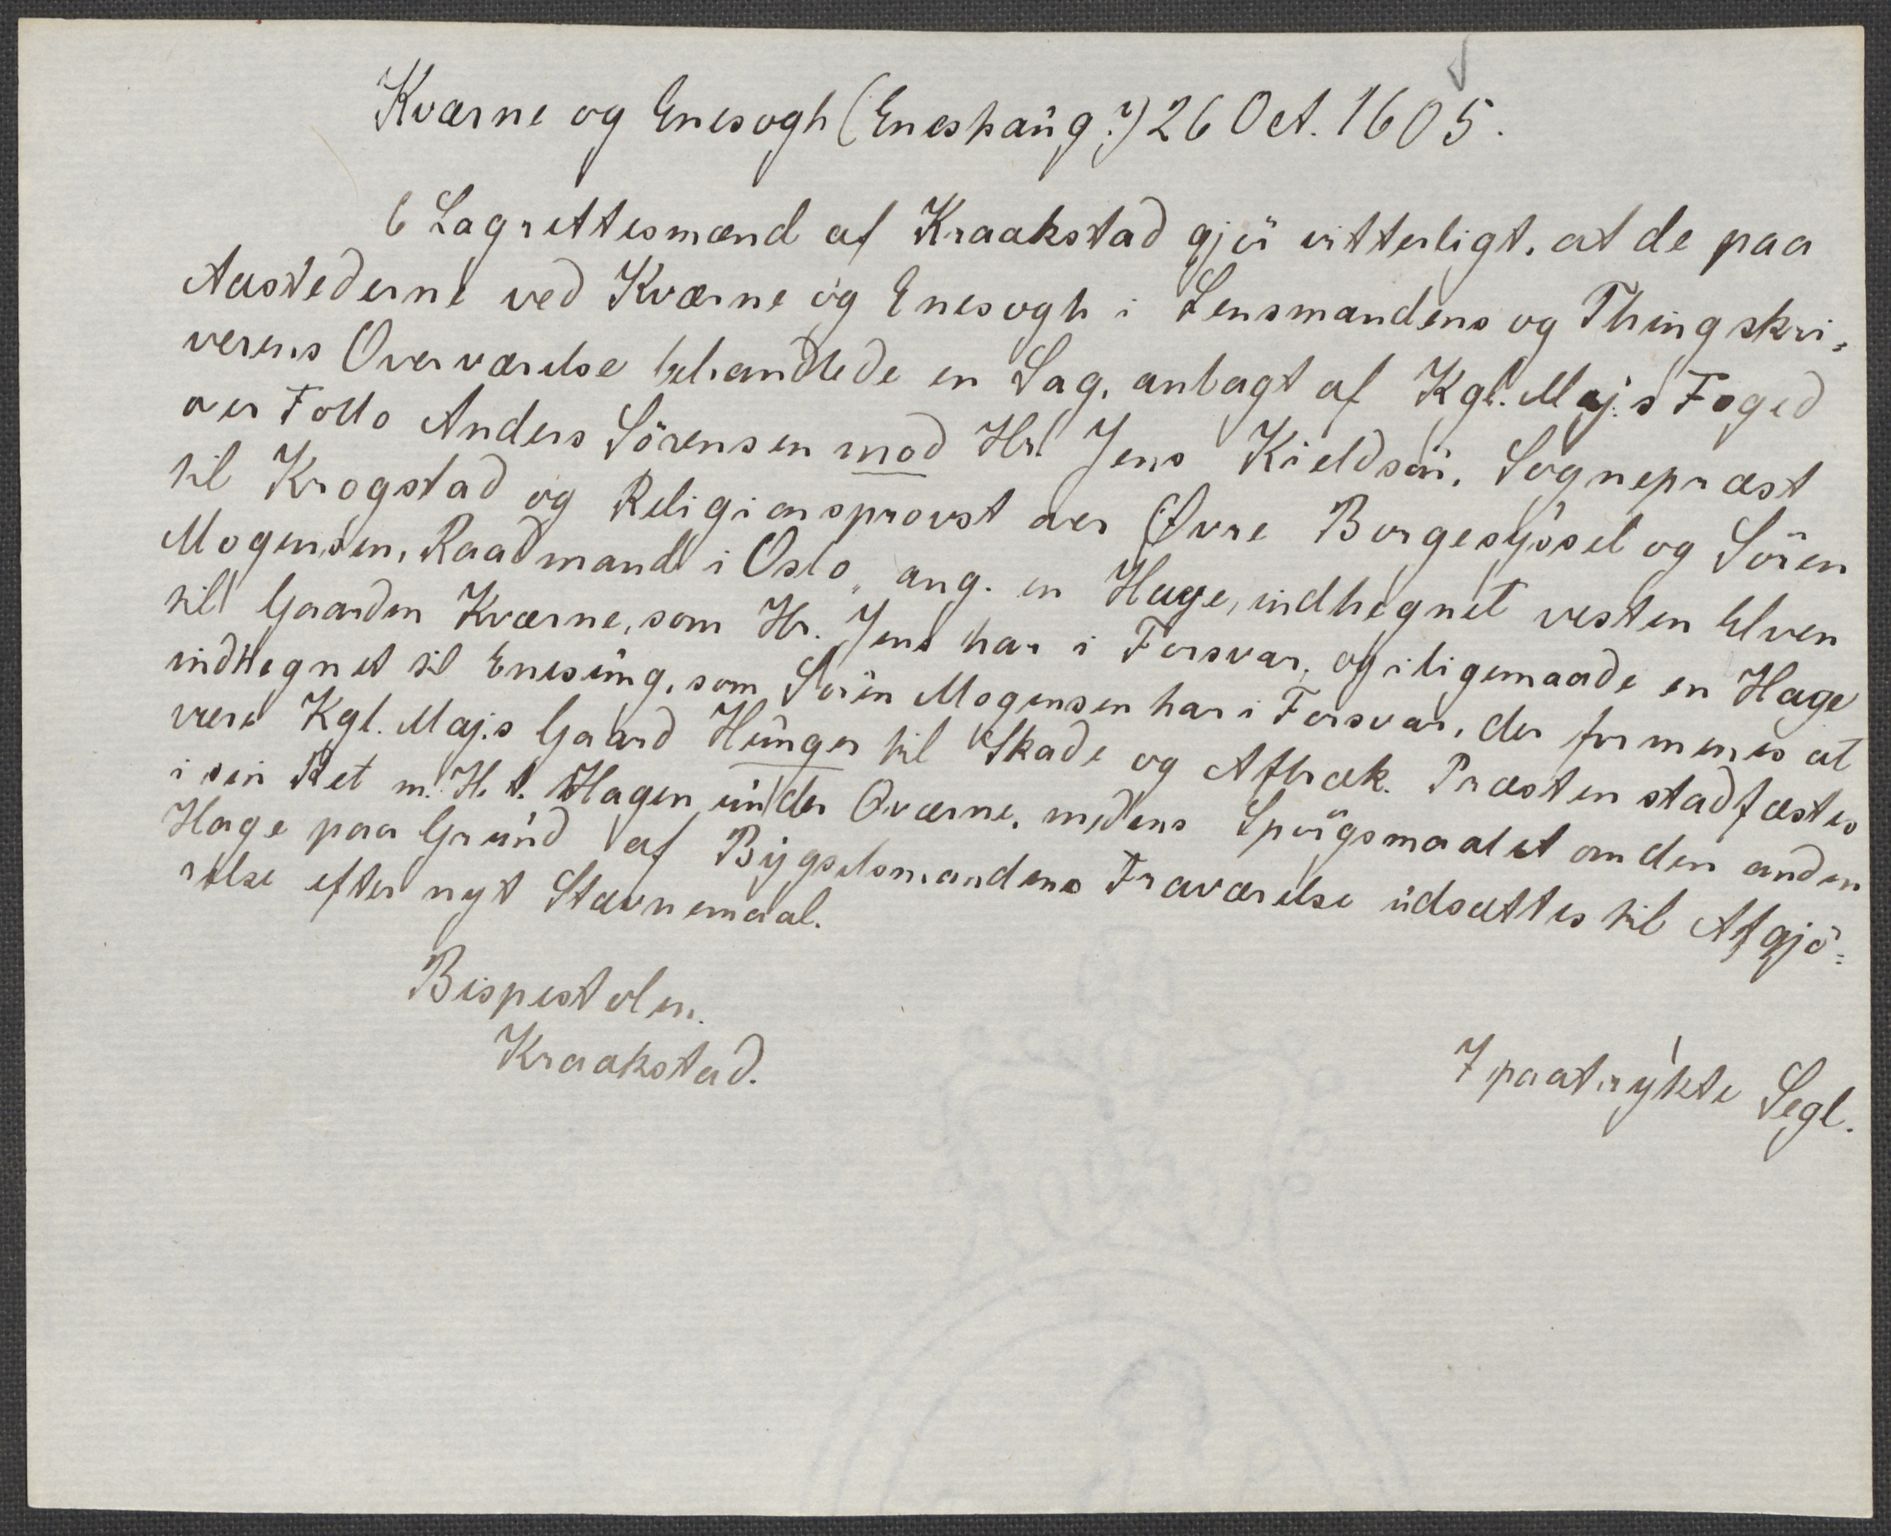 Kværne og Enesogh (Eneshaug?) 26 Oct. 1605.
6 Lagrettesmænd af Kraakstad gjör vitterligt, at de paa
Aastederne ved Kværne og Enesogh i Lensmandens og Thingskri-
verens Overværelse behandlede en Sag, anlagt af Kgl. Maj.s Foged
over Follo Anders Sörensen mod Hr. Jens Kieldsön, Sognepræst
til Krogstad og Religionsprovst over Øvre Borgesyssel og Sören
Mogensen, Raadmand i Oslo, ang. en Hage, indhegnet vesten Elven
til Gaarden Kværne, som Hr. Jens har i Forsvar, og iligemaade en Hage
indhegnet til Enesung, som Sören Mogensen har i Forsvar, der formenes at
være Kgl. Maj.s Gaard Hunger til Skade og Afbræk. Præsten stadfæstes
i sin Ret m. H. t. Hagen under Qværne, medens Spörgsmaalet om den anden
Hage paa Grund af Bygselsmandens Fraværelse udsættes til Afgjö-
relse efter nyt Stævnemaal.
Bispestolen.
Kraakstad.
7 paatrykte Segl.